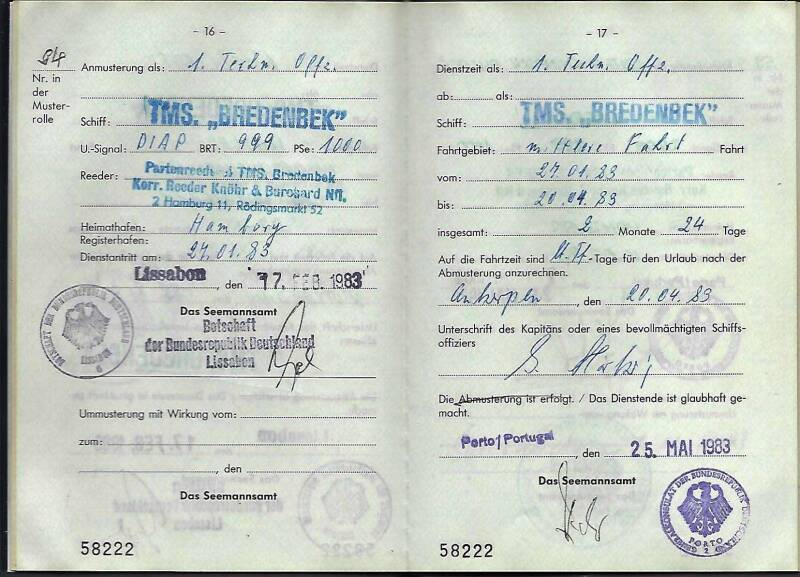 - 16 -
Nr. in der Muster-rolle
Anmusterung als: 1. Techn. Offz.
Schiff: TMS. „BREDENBEK"
U.-Signal: DIAP BRT: 999 PSe: 1000
Reeder: Partenreederei TMS. Bredenbek
Korr. Reeder Knöhr & Burchard Nfl.
2 Hamburg 11, Rödingsmarkt 52
Heimathafen: Hamburg
Registerhafen:
Dienstantritt am: 27.01.83
Lissabon, den 17. FEB. 1983
Das Seemannsamt
Botschaft
der Bundesrepublik Deutschland
Lissabon
BOTSCHAFT DER BUNDESREPUBLIK DEUTSCHLAND
LISSABON
Ummusterung mit Wirkung vom:
zum:
, den
Das Seemannsamt
58222
- 17 -
Dienstzeit als: 1. Techn. Offz.
ab: als:
Schiff: TMS. „BREDENBEK"
Fahrtgebiet: mittlere Fahrt Fahrt
vom: 27.01.83
bis: 20.04.83
insgesamt: 2 Monate 24 Tage
Auf die Fahrtzeit sind -Tage für den Urlaub nach der
Abmusterung anzurechnen.
Antwerpen, den 20.04.83
Unterschrift des Kapitäns oder eines bevollmächtigten Schiffs-
offiziers
Die Abmusterung ist erfolgt. / Das Dienstende ist glaubhaft ge-
macht.
Porto/Portugal, den 25. MAI 1983
Das Seemannsamt
GENERALKONSULAT DER BUNDESREPUBLIK DEUTSCHLAND
PORTO
2
58222